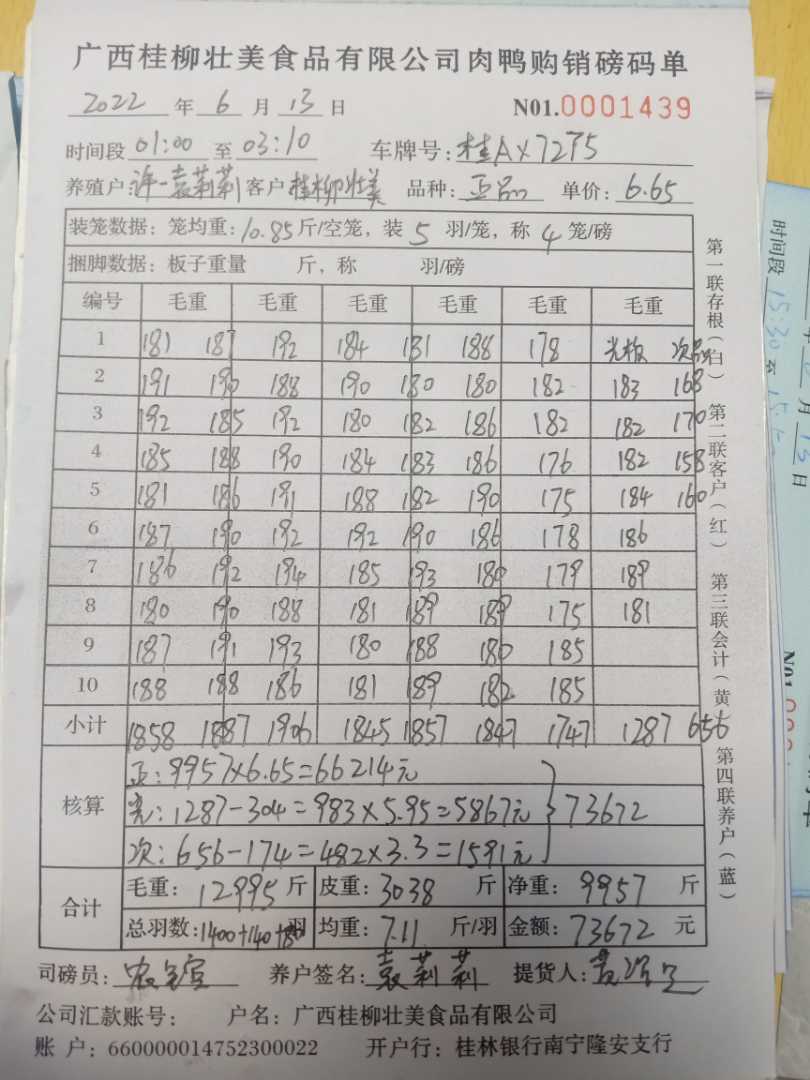 广西桂柳壮美食品有限公司肉鸭购销磅码单
2022 年 6 月 13 日 N01.0001439
时间段 01:00 至 03:10 车牌号: 桂AX7275
养殖户 许一袁莉莉 客户 桂柳壮美 品种: 正品 单价: 6.65
装笼数据: 笼均重: 10.85 斤/空笼, 装 5 羽/笼, 称 4 笼/磅
捆脚数据: 板子重量 斤, 称 羽/磅
编号 毛重 毛重 毛重 毛重 毛重 毛重
1 181 187 192 184 181 188 178 光板 次品
2 191 190 188 190 180 180 182 183 168
3 192 185 192 180 182 186 182 182 170
4 185 188 190 184 183 186 176 182 158
5 181 186 191 188 182 190 175 184 160
6 187 190 192 192 190 186 178 186
7 186 192 194 185 193 180 179 189
8 180 190 188 181 189 189 175 181
9 187 191 193 180 188 180 185
10 188 188 186 181 189 182 185
小计 1858 1887 1906 1845 1857 1847 1747 1287 656
核算
正: 9957×6.65=66214元
光: 1287-304=983×5.95=5867元 }73672
次: 656-174=482×3.3=1591元
合计
毛重: 12995 斤 皮重: 3038 斤 净重: 9957 斤
总羽数: 1400+140+80 羽 均重: 7.11 斤/羽 金额: 73672 元
司磅员: 养户签名: 袁莉莉 提货人:
公司汇款账号: 户名: 广西桂柳壮美食品有限公司
账 户: 660000014752300022 开户行: 桂林银行南宁隆安支行
第一联存根(白) 第二联客户(红) 第三联会计(黄) 第四联养户(蓝)
时间段 15:30 至
月 13 日
N01